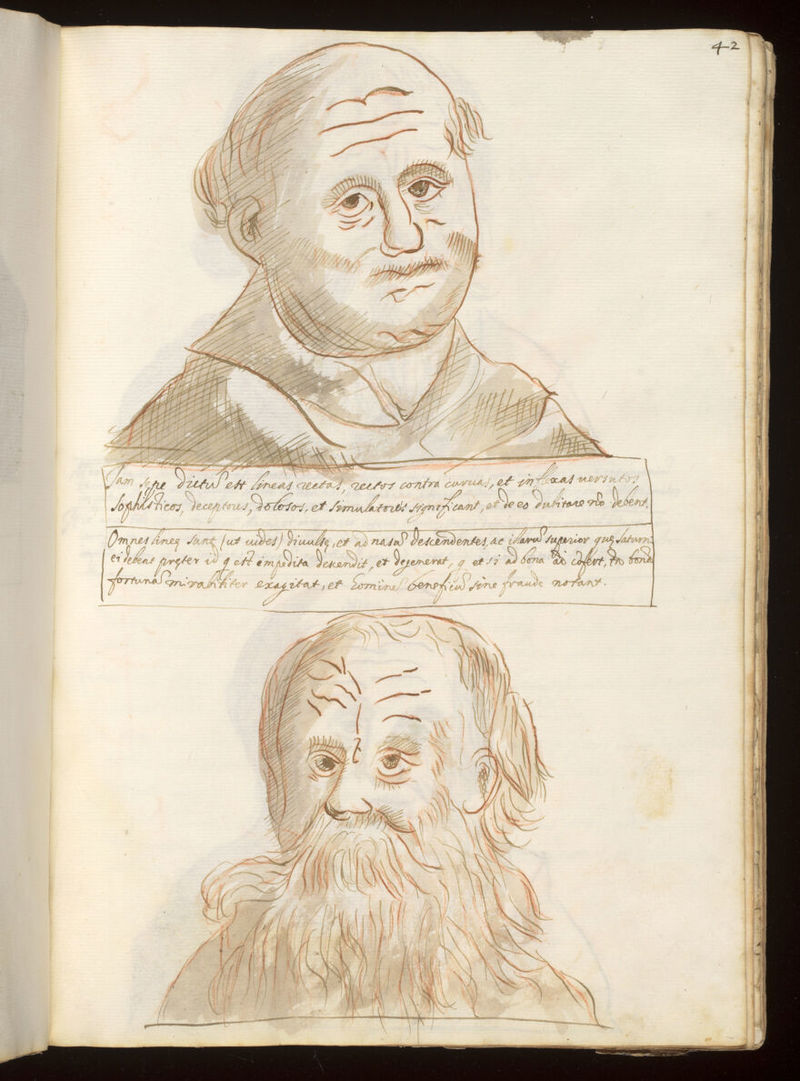 42
Jam sepe dictũ est lineas rectas, rectos contra curuas, et inflexas uersutos
sophisticos, deceptores, dolosos, et simulatores significant, et de eo dubitare nõ debent.
Omnes lineę sunt (ut uides) diuulsę, et ad nasũ descendentes, ac illarũ superior quę Saturni
ei debeat pręter id q est impedita descendit, et degenerat, q et si ad bona
fortunã mirabiliter exagitat, et homine beneficũ sine fraude notant.